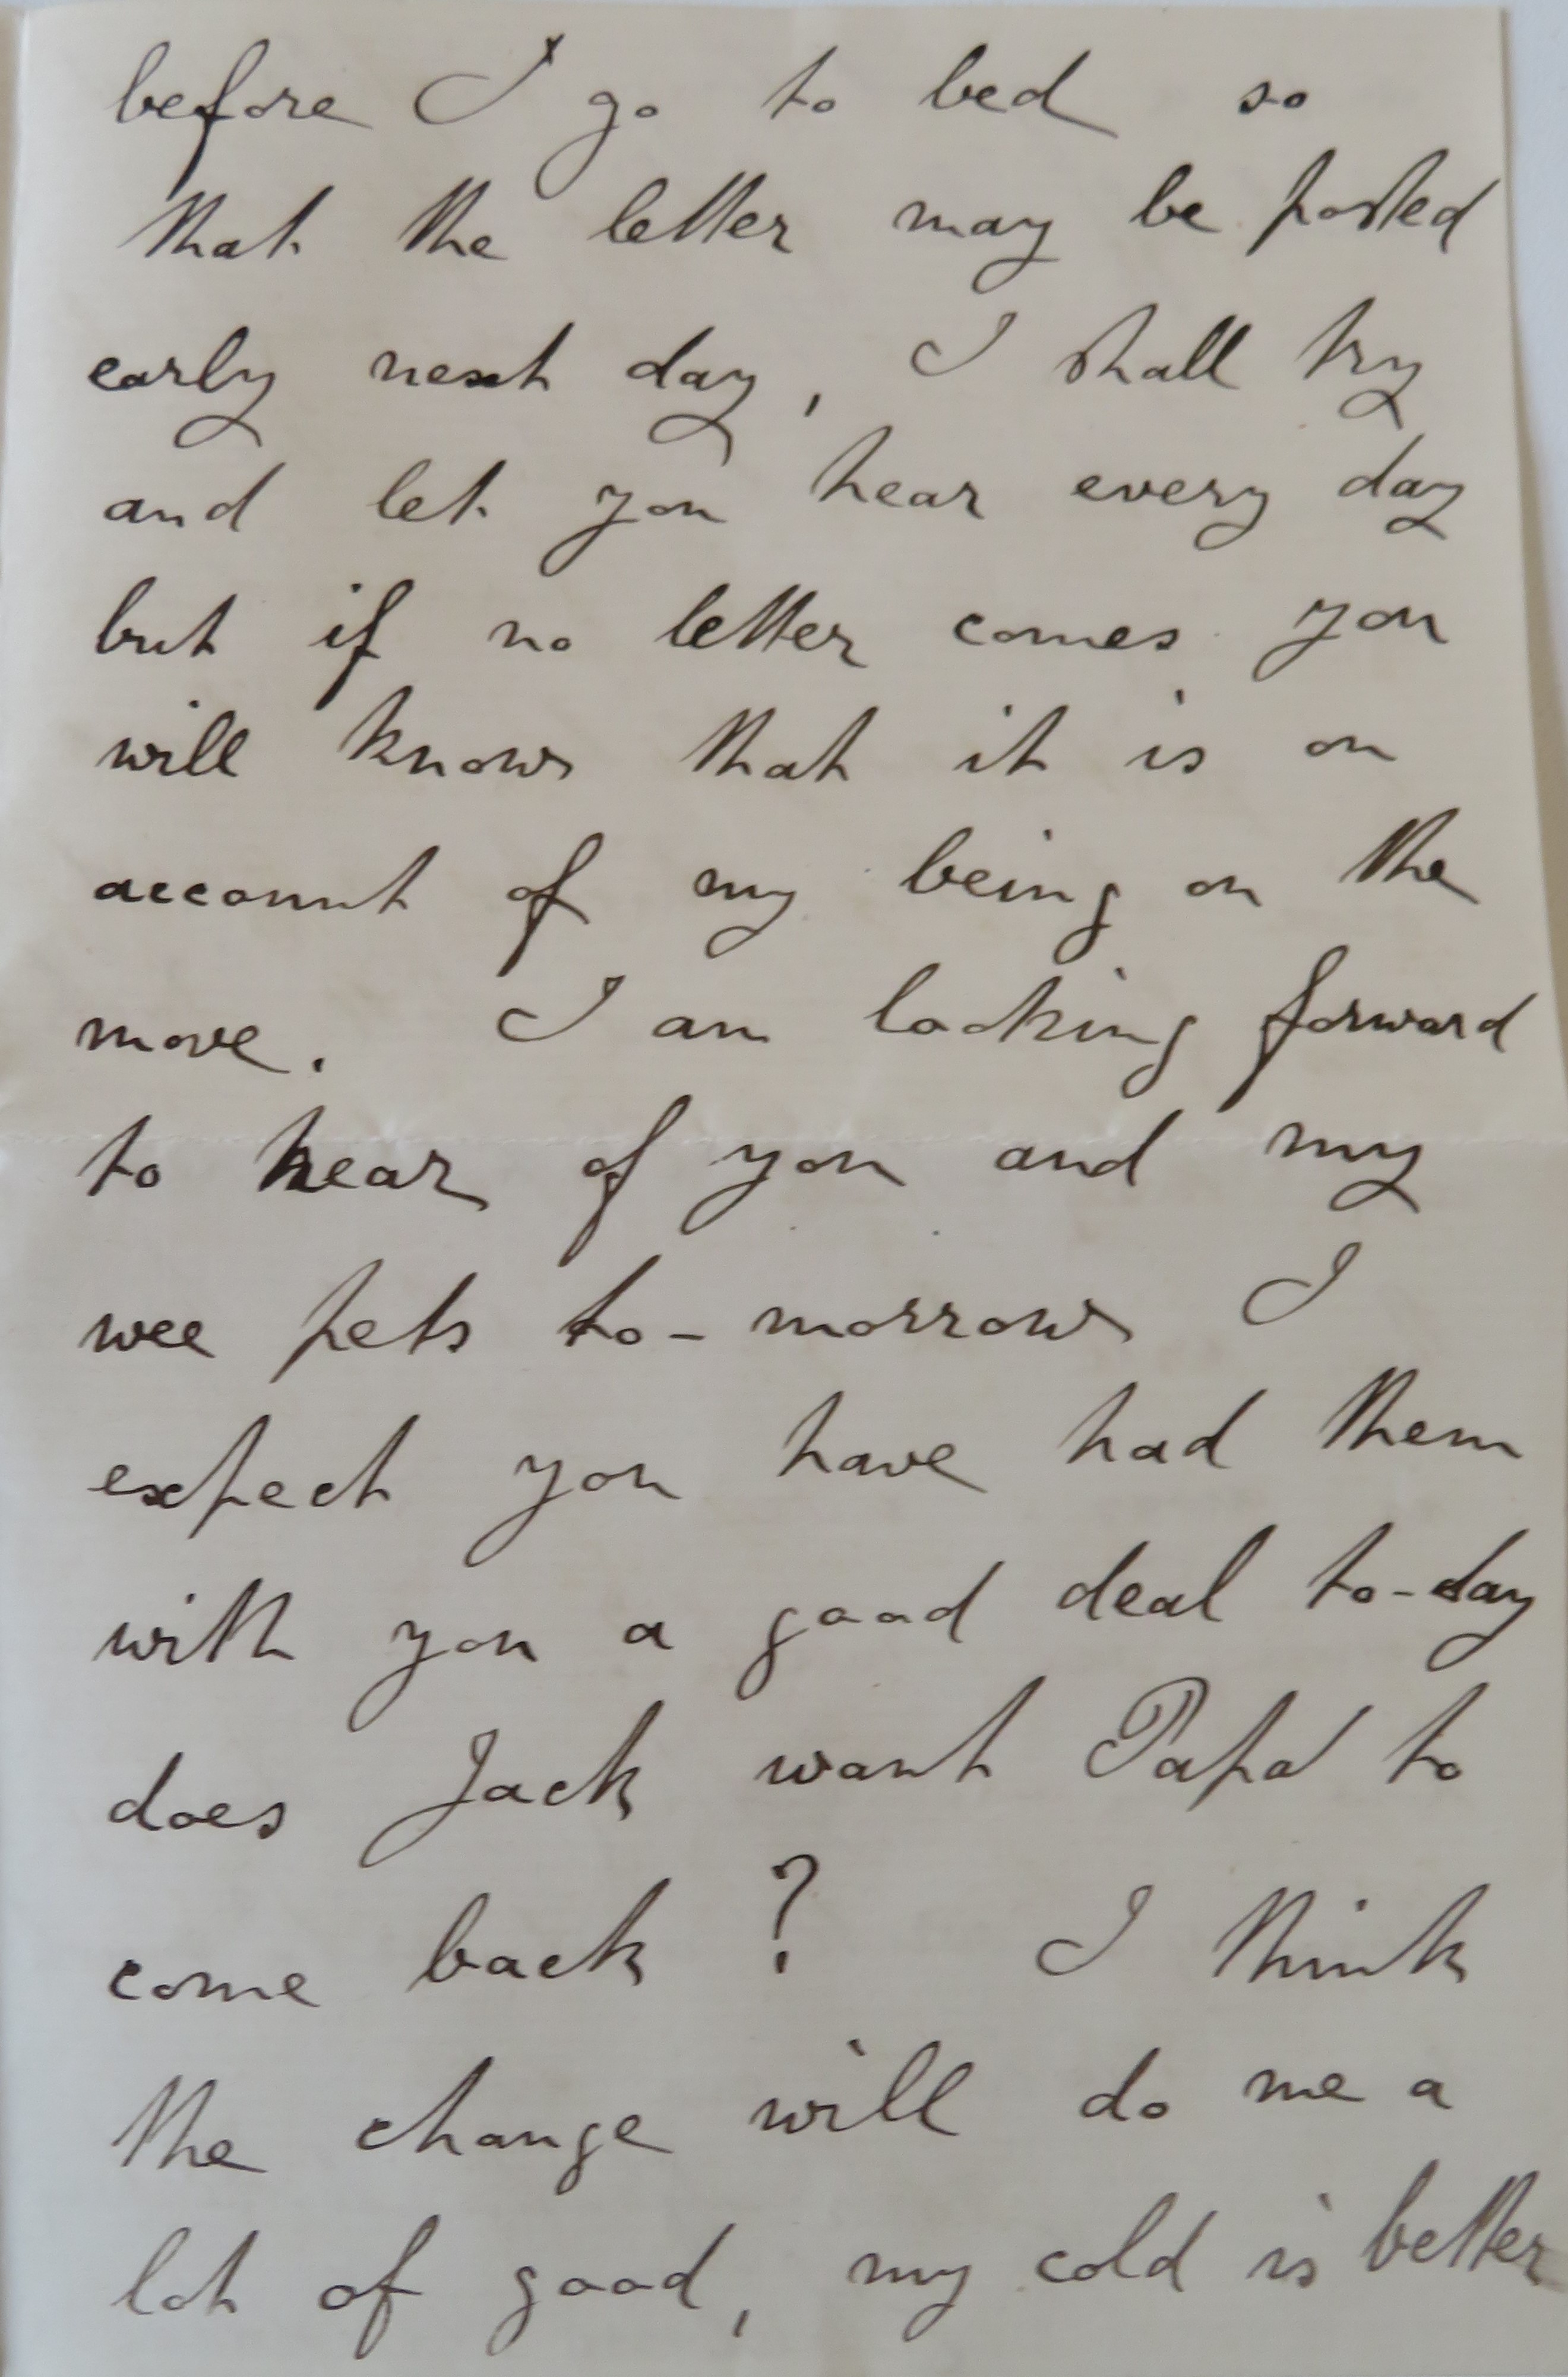 before I go to bed so
that the letter may be posted
early next day, I shall try
and let you hear every day
but if no letter comes you
will know that it is on
account of my being on the
move. I am looking forward
to hear of you and my
wee pets to-morrow I
expect you have had them
with you a good deal to-day
does Jack want Papa to
come back ? I think
the change will do me a
lot of good, my cold is better